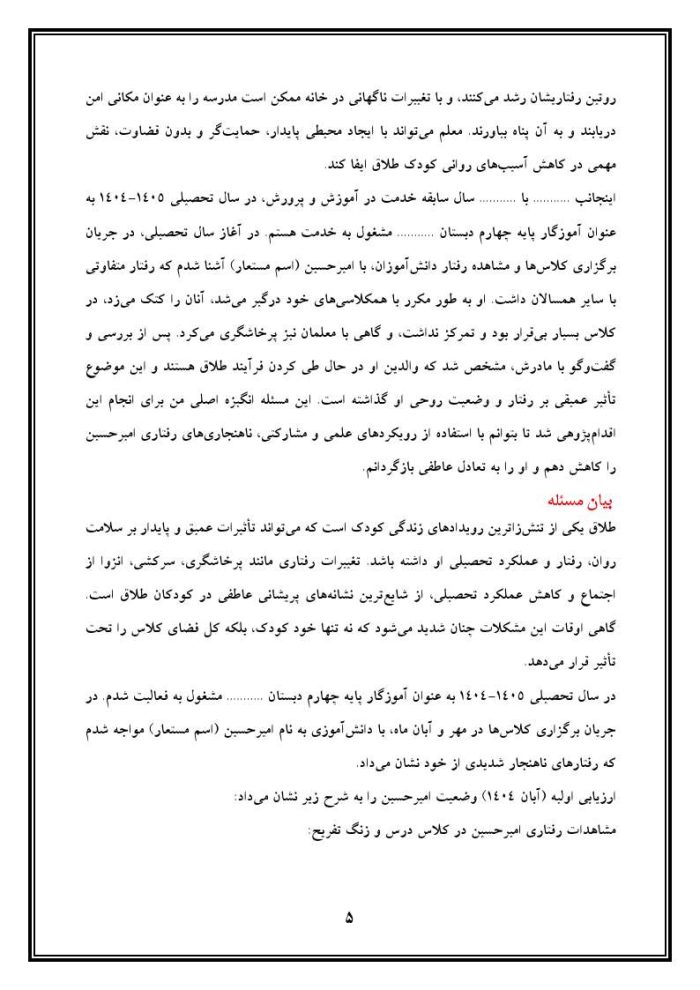 روتین رفتاریشان رشد می‌کنند، و با تغییرات ناگهانی در خانه ممکن است مدرسه را به عنوان مکانی امن
دریابند و به آن پناه بیاورند. معلم می‌تواند با ایجاد محیطی پایدار، حمایت‌گر و بدون قضاوت، نقش
مهمی در کاهش آسیب‌های روانی کودک طلاق ایفا کند.
اینجانب ........... با ........... سال سابقه خدمت در آموزش و پرورش، در سال تحصیلی ۱٤۰٥-۱٤۰٤ به
عنوان آموزگار پایه چهارم دبستان ........... مشغول به خدمت هستم. در آغاز سال تحصیلی، در جریان
برگزاری کلاس‌ها و مشاهده رفتار دانش‌آموزان، با امیرحسین (اسم مستعار) آشنا شدم که رفتار متفاوتی
با سایر همسالان داشت. او به طور مکرر با همکلاسی‌های خود درگیر می‌شد، آنان را کتک می‌زد، در
کلاس بسیار بی‌قرار بود و تمرکز نداشت، و گاهی با معلمان نیز پرخاشگری می‌کرد. پس از بررسی و
گفت‌وگو با مادرش، مشخص شد که والدین او در حال طی کردن فرآیند طلاق هستند و این موضوع
تأثیر عمیقی بر رفتار و وضعیت روحی او گذاشته است. این مسئله انگیزه اصلی من برای انجام این
اقدام‌پژوهی شد تا بتوانم با استفاده از رویکردهای علمی و مشارکتی، ناهنجاری‌های رفتاری امیرحسین
را کاهش دهم و او را به تعادل عاطفی بازگردانم.
بیان مسئله
طلاق یکی از تنش‌زاترین رویدادهای زندگی کودک است که می‌تواند تأثیرات عمیق و پایدار بر سلامت
روان، رفتار و عملکرد تحصیلی او داشته باشد. تغییرات رفتاری مانند پرخاشگری، سرکشی، انزوا از
اجتماع و کاهش عملکرد تحصیلی، از شایع‌ترین نشانه‌های پریشانی عاطفی در کودکان طلاق است.
گاهی اوقات این مشکلات چنان شدید می‌شود که نه تنها خود کودک، بلکه کل فضای کلاس را تحت
تأثیر قرار می‌دهد.
در سال تحصیلی ۱٤۰٥-۱٤۰٤ به عنوان آموزگار پایه چهارم دبستان ........... مشغول به فعالیت شدم. در
جریان برگزاری کلاس‌ها در مهر و آبان ماه، با دانش‌آموزی به نام امیرحسین (اسم مستعار) مواجه شدم
که رفتارهای ناهنجار شدیدی از خود نشان می‌داد.
ارزیابی اولیه (آبان ۱٤۰٤) وضعیت امیرحسین را به شرح زیر نشان می‌داد:
مشاهدات رفتاری امیرحسین در کلاس درس و زنگ تفریح:
۵